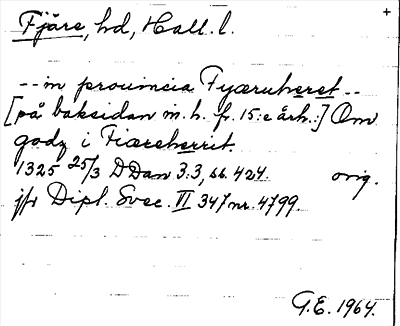 Fjäre, hd, Hall. l.
+
-- in prouincia Fyæruheret --
[på baksidan m. h. fr. 15:e årh.:] Om
godz i Fiæreherrit.
1325 25/3 DDan 3:3, ss. 424. orig.
jfr Dipl. Svec. VI 347 nr. 4799.
G.E. 1964.